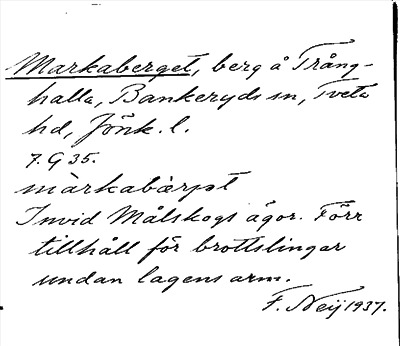 Markaberget, berg å Trång-
halla, Bankeryds sn, Tveta
hd, Jönk. l.
7. G 35.
màrkabàrjet
Invid Målskogs ägor. Förr
tillhåll för brottslingar
undan lagens arm.
F. Neij 1937.